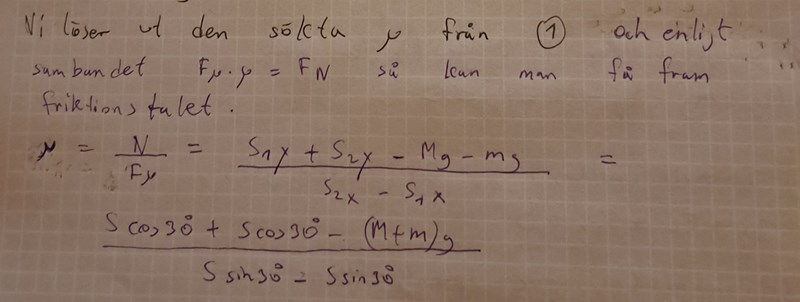 Vi löser ut den sökta μ från ① och enligt
sambandet Fμ · μ = FN så kan man få fram
friktionstalet.
μ = N / Fμ = (S1y + S2y - Mg - mg) / (S2x - S1x) =
(S cos 30° + S cos 30° - (M+m)g) / (S sin 30° - S sin 30°)